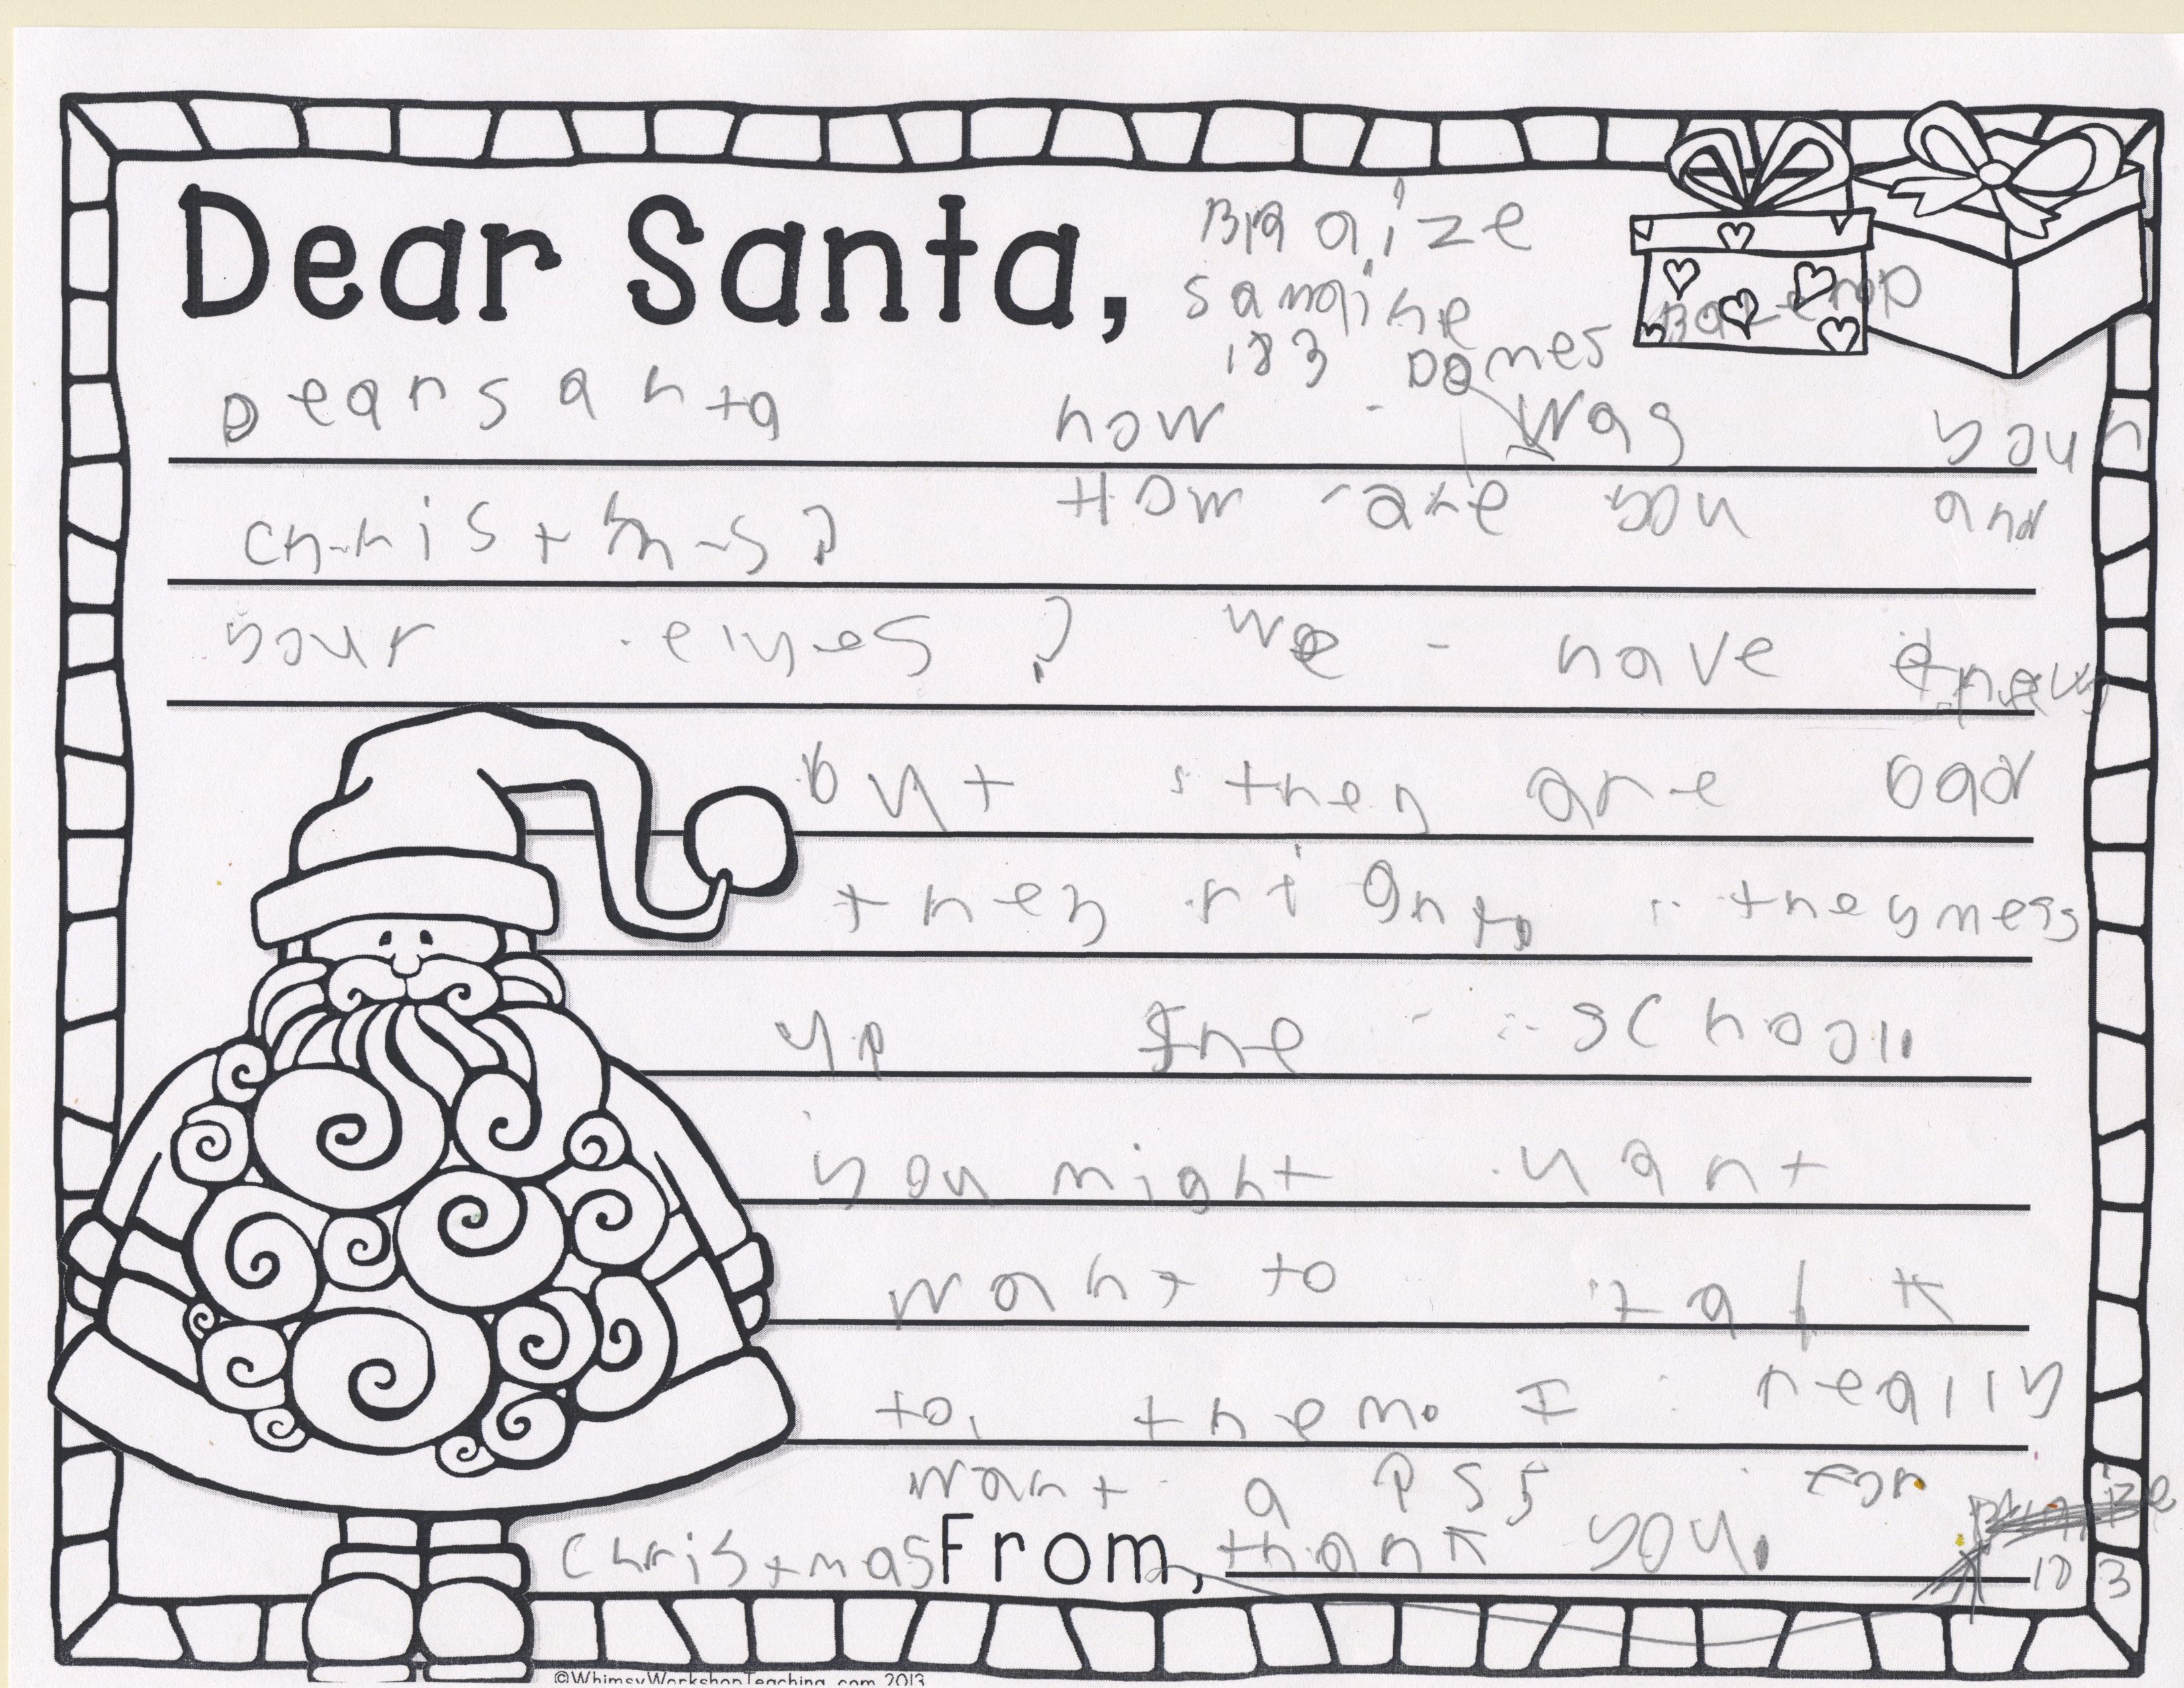 Dear Santa, Braize
183 Dames
Dear santa how was your
christms? How are you and
your elves? We have
but they are bad
they right to they mess
up the school
you might uant
want to talk
to, them. I really
want a PS5 for
Christmas From, thank you.
183
©WhimsyWorkshopTeaching.com 2013